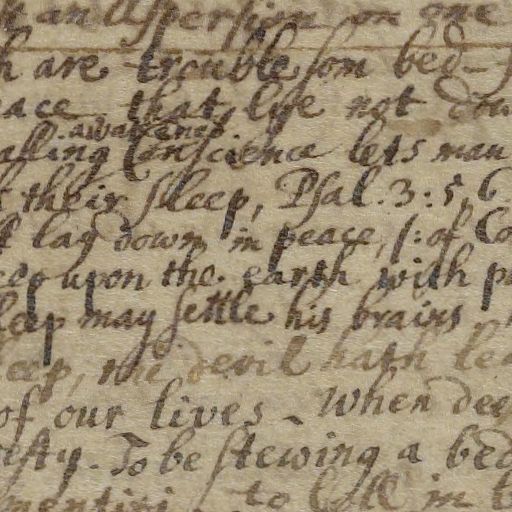 an Aspersion on one
h are troublesom bed-f
eace that lye not dow
awakened
alling Conscience lets mau
t their sleep, Psal. 3: 5, 6
lay down in peace, 1: of Co
upon the earth with p
leep may settle his brains
leep, the devil hath le
of our lives. When dee
esty. To be stewing a bed
to loll in b